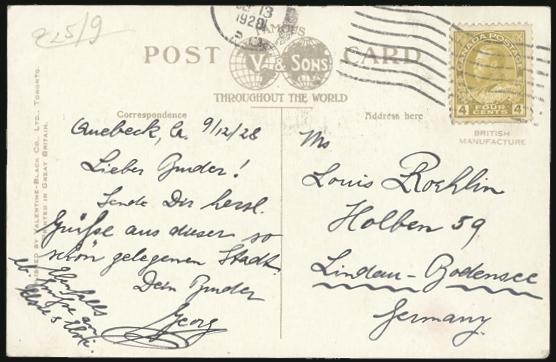 225/9
13
1928
POST CARD
FAMOUS
V & SONS
THROUGHOUT THE WORLD
CANADA POSTAGE
4 FOUR CENTS 4
BRITISH
MANUFACTURE
Correspondence
Address here
VALENTINE-BLACK CO., LTD., TORONTO.
PRINTED IN GREAT BRITAIN.
Quebeck, Ca 9/12/28
Lieber Bruder!
Sende Dir herzl.
Grüße aus dieser so
schön gelegenen Stadt.
Dein Bruder
Georg
Ebenfalls
Grüße an
Mr
Louis Roehlin
Holben 59
Lindau-Bodensee
Germany